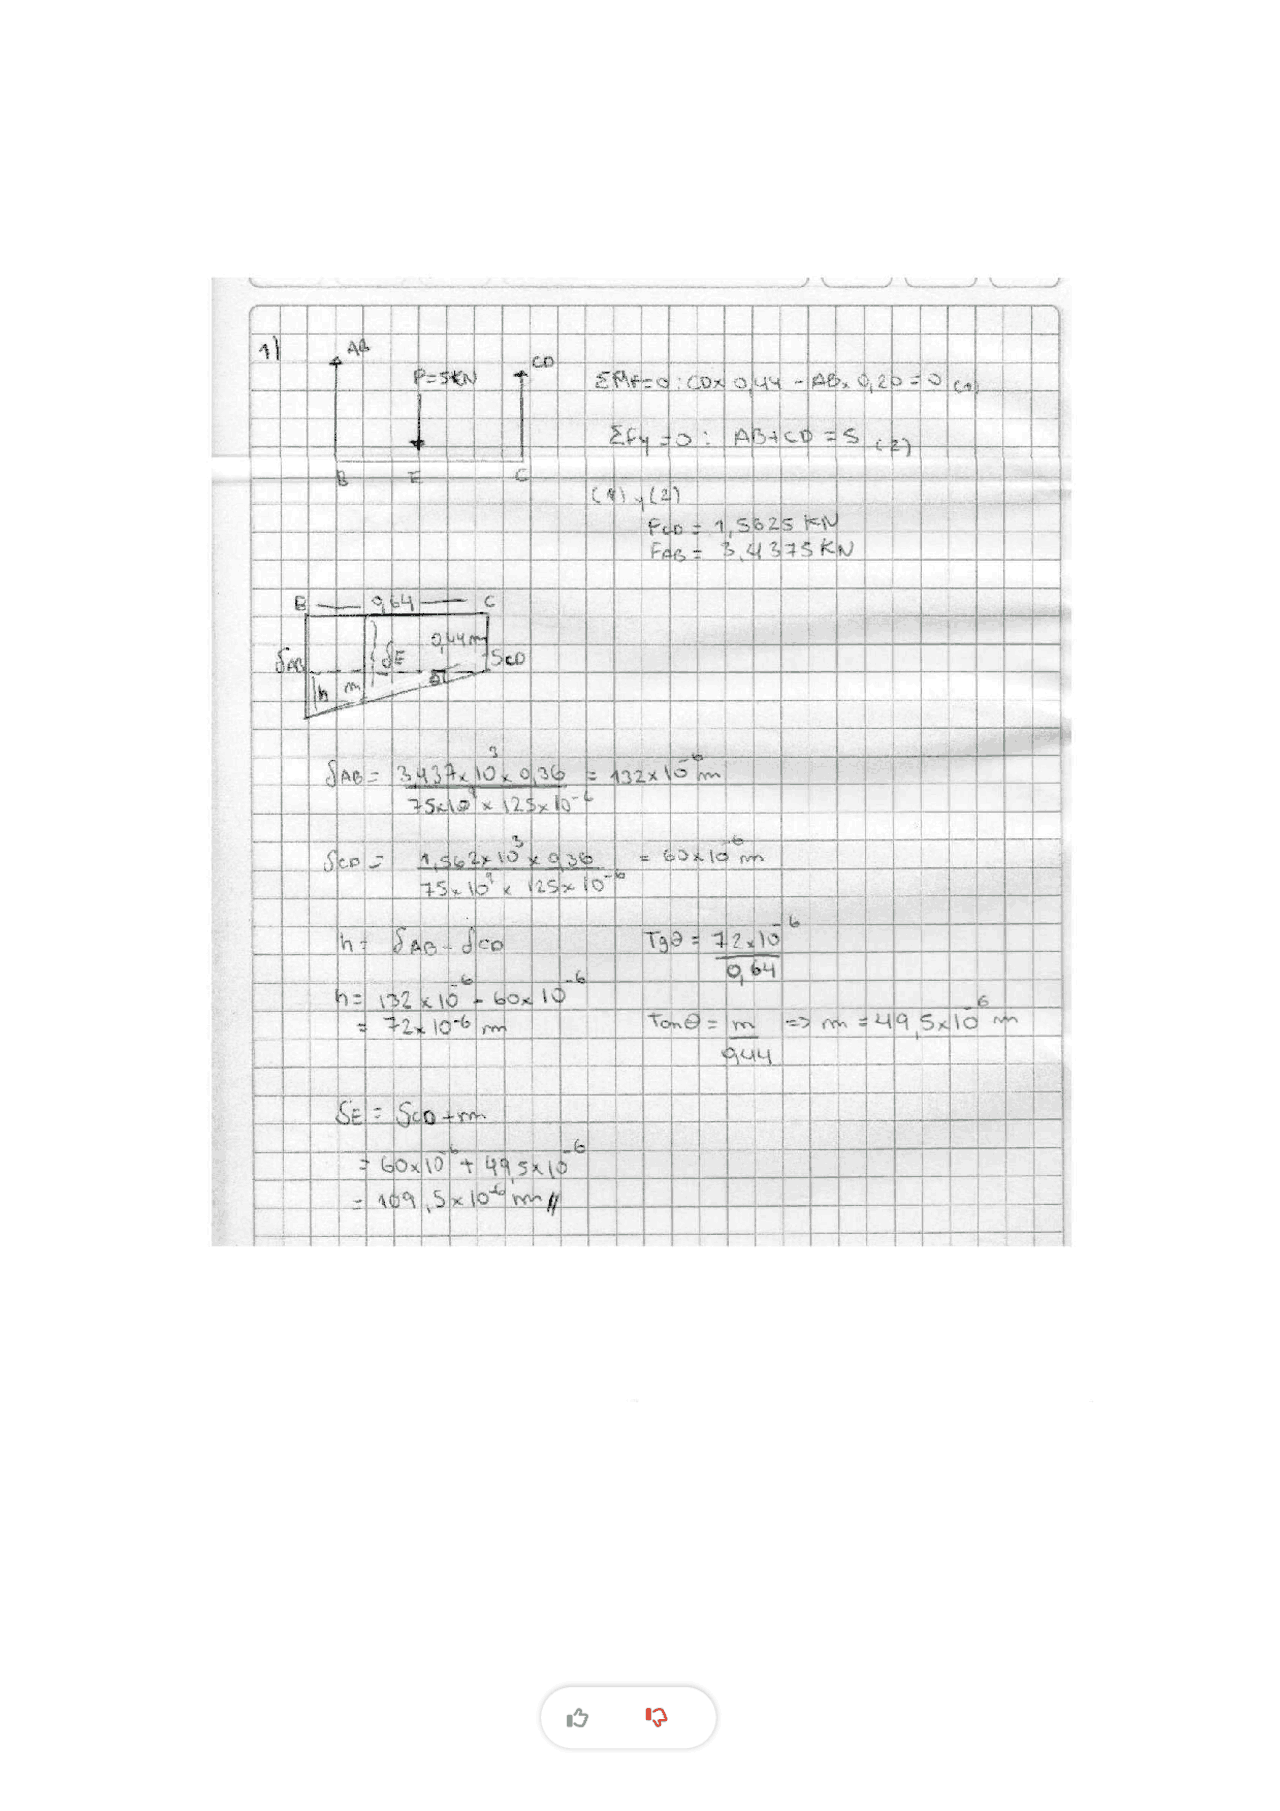 1)
AB
P=5KN
CD
B E C
ΣMF=0: CD x 0,44 - AB x 0,20 = 0 (1)
ΣFy = 0: AB+CD = 5 (2)
(1) y (2)
FCD = 1,5625 KN
FAB = 3,4375 KN
B 0,64 C
δAB δE 0,44m δCD
h m θ
δAB = 3,437x10³ x 0,36 / 75x10⁹ x 125x10⁻⁶ = 132x10⁻⁶ m
δCD = 1,562x10³ x 0,36 / 75x10⁹ x 125x10⁻⁶ = 60x10⁻⁶ m
h = δAB - δCD
h = 132x10⁻⁶ - 60x10⁻⁶
= 72x10⁻⁶ m
Tgθ = 72x10⁻⁶ / 0,64
Tanθ = m / 0,44 => m = 49,5x10⁻⁶ m
δE = δCD + m
= 60x10⁻⁶ + 49,5x10⁻⁶
= 109,5x10⁻⁶ m //